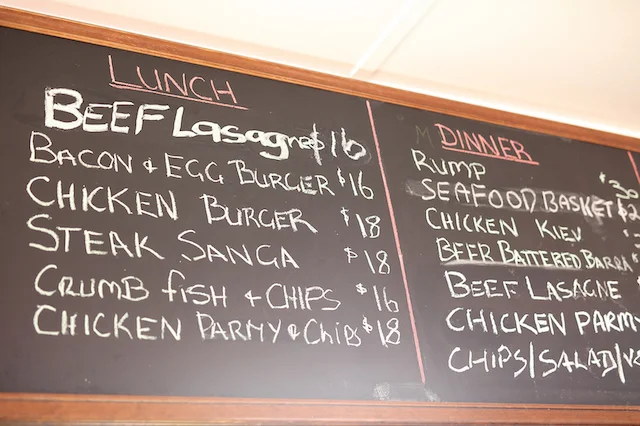 LUNCH
BEEF Lasagne $16
BACON & EGG BURGER $16
CHICKEN BURGER $18
STEAK SANGA $18
CRUMB fISH & CHIPS $16
CHICKEN PARMY & Chips $18
DINNER
RUMP $30
SEAFOOD BASKET
CHICKEN KIEV
BEER BATTERED BARRA
BEEF LASAGNE
CHICKEN PARMY
CHIPS/SALAD/